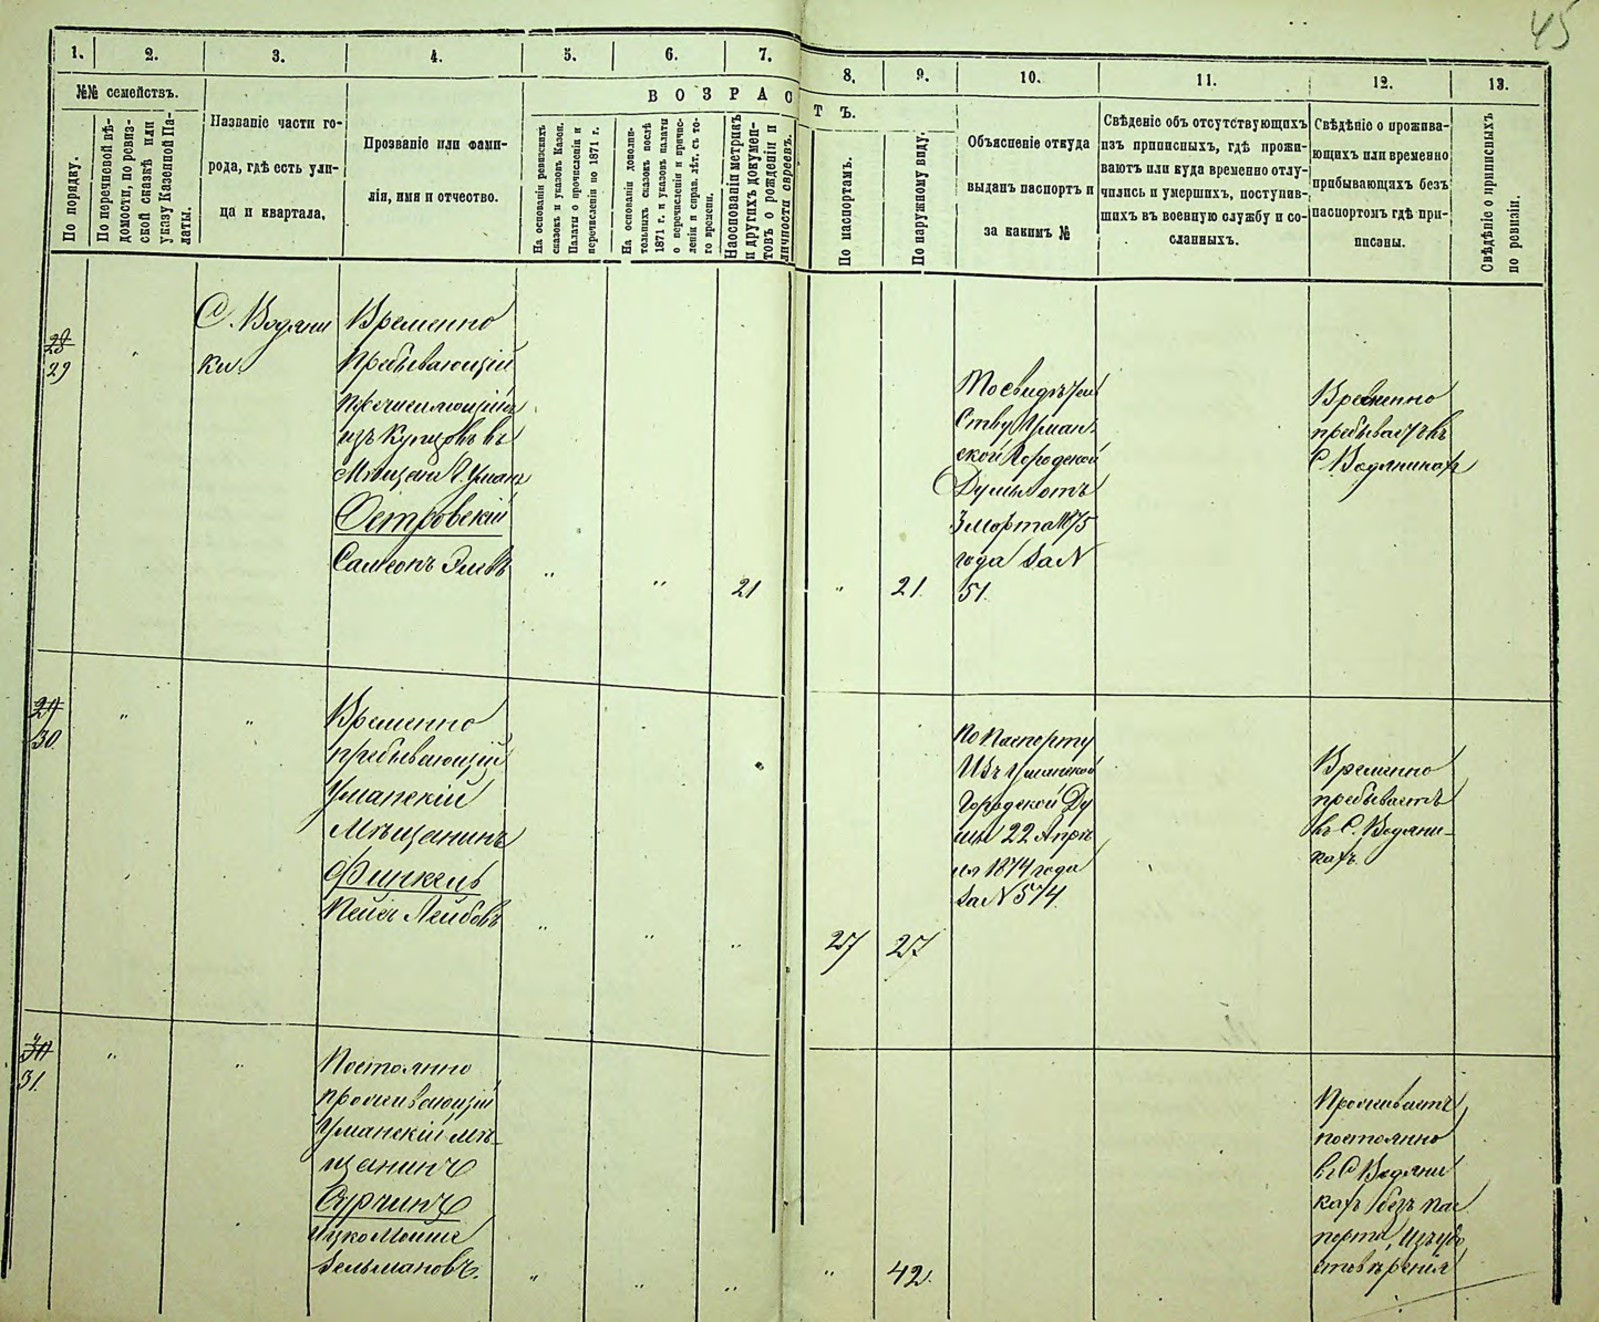 45
1.
2.
3.
4.
5.
6.
7.
8.
9.
10.
11.
12.
13.
№№ семействъ.
По порядку.
По перечневой вѣ-
домости, по ревиз-
ской сказкѣ или
указу Казенной Па-
латы.
Названіе части го-
рода, гдѣ есть ули-
ца и квартала.
Прозваніе или фами-
лія, имя и отчество.
ВОЗРАС
ТЪ.
На основаніи ревизскихъ
сказокъ и указовъ Казен.
Палаты о причисленіи и
перечисленіи по 1871 г.
На основаніи дополни-
тельныхъ сказокъ послѣ
1871 г. и указовъ палаты
о перечисленіи и причис-
леніи и справ. лѣт. съ то-
го времени.
На основаніи метрикъ
и другихъ докумен-
товъ о рожденіи и
личности евреевъ.
По паспортамъ.
По наружному виду.
Объясненіе откуда
выданъ паспортъ и
за какимъ №
Свѣденіе объ отсутствующихъ
изъ приписныхъ, гдѣ прожи-
ваютъ или куда временно отлу-
чились и умершихъ, поступив-
шихъ въ военную службу и со-
сланныхъ.
Свѣдѣніе о прожива-
ющихъ или временно
прибывающихъ безъ
паспортомъ гдѣ при-
писаны.
Свѣдѣніе о приписныхъ
по ревизіи.
28
29
С. Водяни
ки.
Временно
Пребывающій
Перечисляющійся
изъ Купцовъ въ
Мѣщани Г. Умань
Островскій
Самсонъ
21
21.
По свидѣтель
ству Уман
ской Городской
Думы отъ
3 Марта 1875
года за №
51.
Временно
пребываетъ въ
С. Водяникахъ
29
30.
Временно
пребывающій
Уманскій
Мѣщанинъ
Финкель
Лейбовъ
27
27
По Паспорту
Изъ Уманской
Городской Ду
мы 22 Апрѣ
ля 1874 года
за № 574.
Временно
пребываетъ
въ С. Водяни-
кахъ.
30
31.
Постоянно
проживающій
Уманскій Мѣ-
щанинъ
Ицко Мошко
Зельмановъ.
42.
Проживаетъ
постоянно
въ С Водяни
кахъ безъ пас
порта,